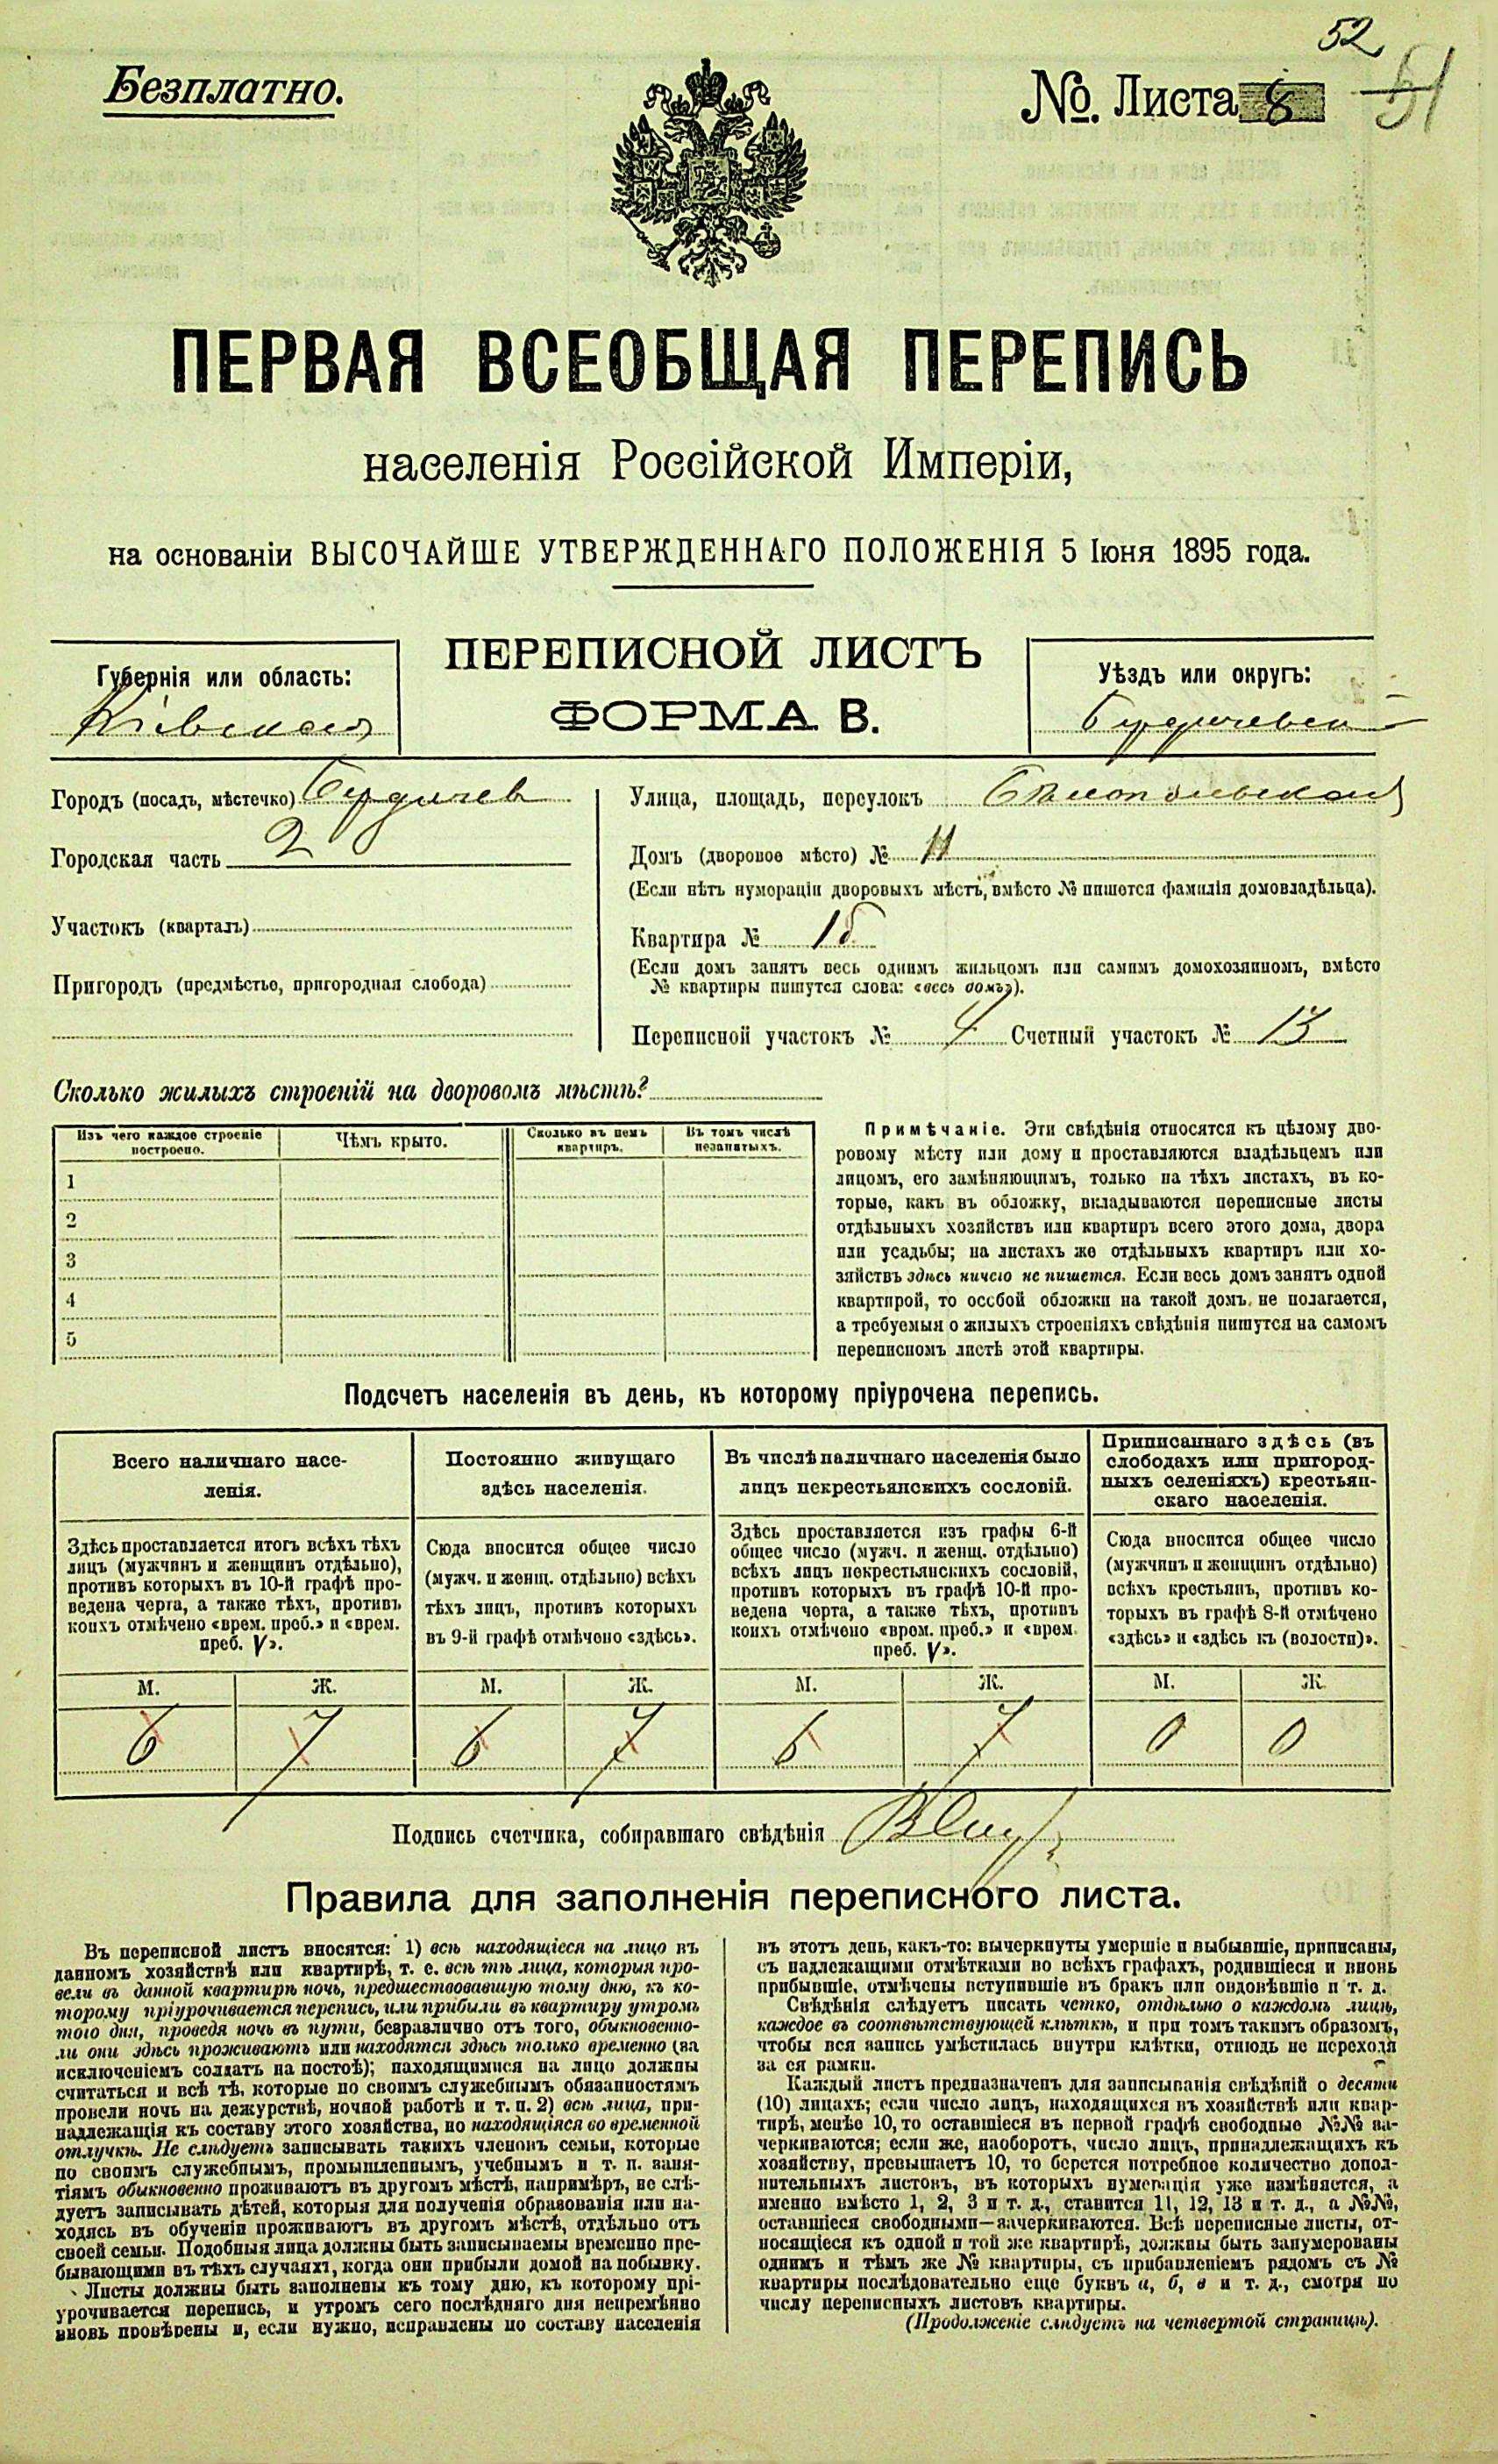 52
51
Безплатно.
№. Листа 8
ПЕРВАЯ ВСЕОБЩАЯ ПЕРЕПИСЬ
населенія Россійской Имперіи,
на основаніи ВЫСОЧАЙШЕ УТВЕРЖДЕННАГО ПОЛОЖЕНІЯ 5 Іюня 1895 года.
Губернія или область:
Кіевская
ПЕРЕПИСНОЙ ЛИСТЪ
ФОРМА В.
Уѣздъ или округъ:
Бердичевскій
Городъ (посадъ, мѣстечко) Бердичев
Городская часть 2
Участокъ (кварталъ)
Пригородъ (предмѣстье, пригородная слобода)
Улица, площадь, переулокъ
Домъ (дворовое мѣсто) № 11
(Если нѣтъ нумераціи дворовыхъ мѣстъ, вмѣсто № пишется фамилія домовладѣльца).
Квартира № 1б
(Если домъ занятъ весь однимъ жильцомъ или самимъ домохозяиномъ, вмѣсто
№ квартиры пишутся слова: «весь домъ»).
Переписной участокъ № 4 Счетный участокъ № 13
Сколько жилыхъ строеній на дворовомъ мѣстѣ?
Изъ чего каждое строеніе
построено.
Чѣмъ крыто.
Сколько въ немъ
квартиръ.
Въ томъ числѣ
незанятыхъ.
1
2
3
4
5
Примѣчаніе. Эти свѣдѣнія относятся къ цѣлому дво-
ровому мѣсту или дому и проставляются владѣльцемъ или
лицомъ, его замѣняющимъ, только на тѣхъ листахъ, въ ко-
торые, какъ въ обложку, вкладываются переписные листы
отдѣльныхъ хозяйствъ или квартиръ всего этого дома, двора
или усадьбы; на листахъ же отдѣльныхъ квартиръ или хо-
зяйствъ здѣсь ничего не пишется. Если весь домъ занятъ одной
квартирой, то особой обложки на такой домъ не полагается,
а требуемыя о жилыхъ строеніяхъ свѣдѣнія пишутся на самомъ
переписномъ листѣ этой квартиры.
Подсчетъ населенія въ день, къ которому пріурочена перепись.
Всего наличнаго насе-
ленія.
Постоянно живущаго
здѣсь населенія.
Въ числѣ наличнаго населенія было
лицъ некрестьянскихъ сословій.
Приписаннаго здѣсь (въ
слободахъ или пригород-
ныхъ селеніяхъ) крестьян-
скаго населенія.
Здѣсь проставляется итогъ всѣхъ тѣхъ
лицъ (мужчинъ и женщинъ отдѣльно),
противъ которыхъ въ 10-й графѣ про-
ведена черта, а также тѣхъ, противъ
коихъ отмѣчено «врем. преб.» и «врем.
преб. V».
Сюда вносится общее число
(мужч. и женщ. отдѣльно) всѣхъ
тѣхъ лицъ, противъ которыхъ
въ 9-й графѣ отмѣчено «здѣсь».
Здѣсь проставляется изъ графы 6-й
общее число (мужч. и женщ. отдѣльно)
всѣхъ лицъ некрестьянскихъ сословій,
противъ которыхъ въ графѣ 10-й про-
ведена черта, а также тѣхъ, противъ
коихъ отмѣчено «врем. преб.» и «врем.
преб. V».
Сюда вносится общее число
(мужчинъ и женщинъ отдѣльно)
всѣхъ крестьянъ, противъ ко-
торыхъ въ графѣ 8-й отмѣчено
«здѣсь» и «здѣсь къ (волости)».
М. Ж. М. Ж. М. Ж. М. Ж.
6 7 6 7 6 7 0 0
Подпись счетчика, собиравшаго свѣдѣнія
Правила для заполненія переписного листа.
Въ переписной листъ вносятся: 1) всѣ находящіеся на лицо въ
данномъ хозяйствѣ или квартирѣ, т. е. всѣ тѣ лица, которыя про-
вели въ данной квартирѣ ночь, предшествовавшую тому дню, къ ко-
торому пріурочивается перепись, или прибыли въ квартиру утромъ
того дня, проведя ночь въ пути, безразлично отъ того, обыкновенно-
ли они здѣсь проживаютъ или находятся здѣсь только временно (за
исключеніемъ солдатъ на постоѣ); находящимися на лицо должны
считаться и всѣ тѣ, которые по своимъ служебнымъ обязанностямъ
провели ночь на дежурствѣ, ночной работѣ и т. п. 2) всѣ лица, при-
надлежащія къ составу этого хозяйства, но находящіяся во временной
отлучкѣ. Не слѣдуетъ записывать такихъ членовъ семьи, которые
по своимъ служебнымъ, промышленнымъ, учебнымъ и т. п. заня-
тіямъ обыкновенно проживаютъ въ другомъ мѣстѣ, напримѣръ, не слѣ-
дуетъ записывать дѣтей, которыя для полученія образованія или на-
ходясь въ обученіи проживаютъ въ другомъ мѣстѣ, отдѣльно отъ
своей семьи. Подобныя лица должны быть записываемы временно пре-
бывающими въ тѣхъ случаяхъ, когда они прибыли домой на побывку.
Листы должны быть заполнены къ тому дню, къ которому прі-
урочивается перепись, и утромъ сего послѣдняго дня непремѣнно
вновь провѣрены и, если нужно, исправлены по составу населенія
въ этотъ день, какъ-то: вычеркнуты умершіе и выбывшіе, приписаны,
съ надлежащими отмѣтками во всѣхъ графахъ, родившіеся и вновь
прибывшіе, отмѣчены вступившіе въ бракъ или овдовѣвшіе и т. д.
Свѣдѣнія слѣдуетъ писать четко, отдѣльно о каждомъ лицѣ,
каждое въ соотвѣтствующей клѣткѣ, и при томъ такимъ образомъ,
чтобы вся запись умѣстилась внутри клѣтки, отнюдь не переходя
за ея рамки.
Каждый листъ предназначенъ для записыванія свѣдѣній о десяти
(10) лицахъ; если число лицъ, находящихся въ хозяйствѣ или квар-
тирѣ, менѣе 10, то оставшіеся въ первой графѣ свободные №№ за-
черкиваются; если же, наоборотъ, число лицъ, принадлежащихъ къ
хозяйству, превышаетъ 10, то берется потребное количество допол-
нительныхъ листовъ, въ которыхъ нумерація уже измѣняется, а
именно вмѣсто 1, 2, 3 и т. д., ставится 11, 12, 13 и т. д., а №№,
оставшіеся свободными—зачеркиваются. Всѣ переписные листы, от-
носящіеся къ одной и той же квартирѣ, должны быть занумерованы
однимъ и тѣмъ же № квартиры, съ прибавленіемъ рядомъ съ №
квартиры послѣдовательно еще буквъ а, б, в и т. д., смотря по
числу переписныхъ листовъ квартиры.
(Продолженіе слѣдуетъ на четвертой страницѣ).